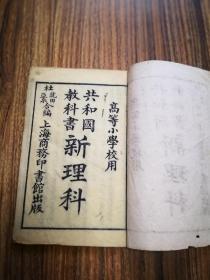 高等小學校用
共和國教科書新理科
杜亞泉
上海商務印書館出版